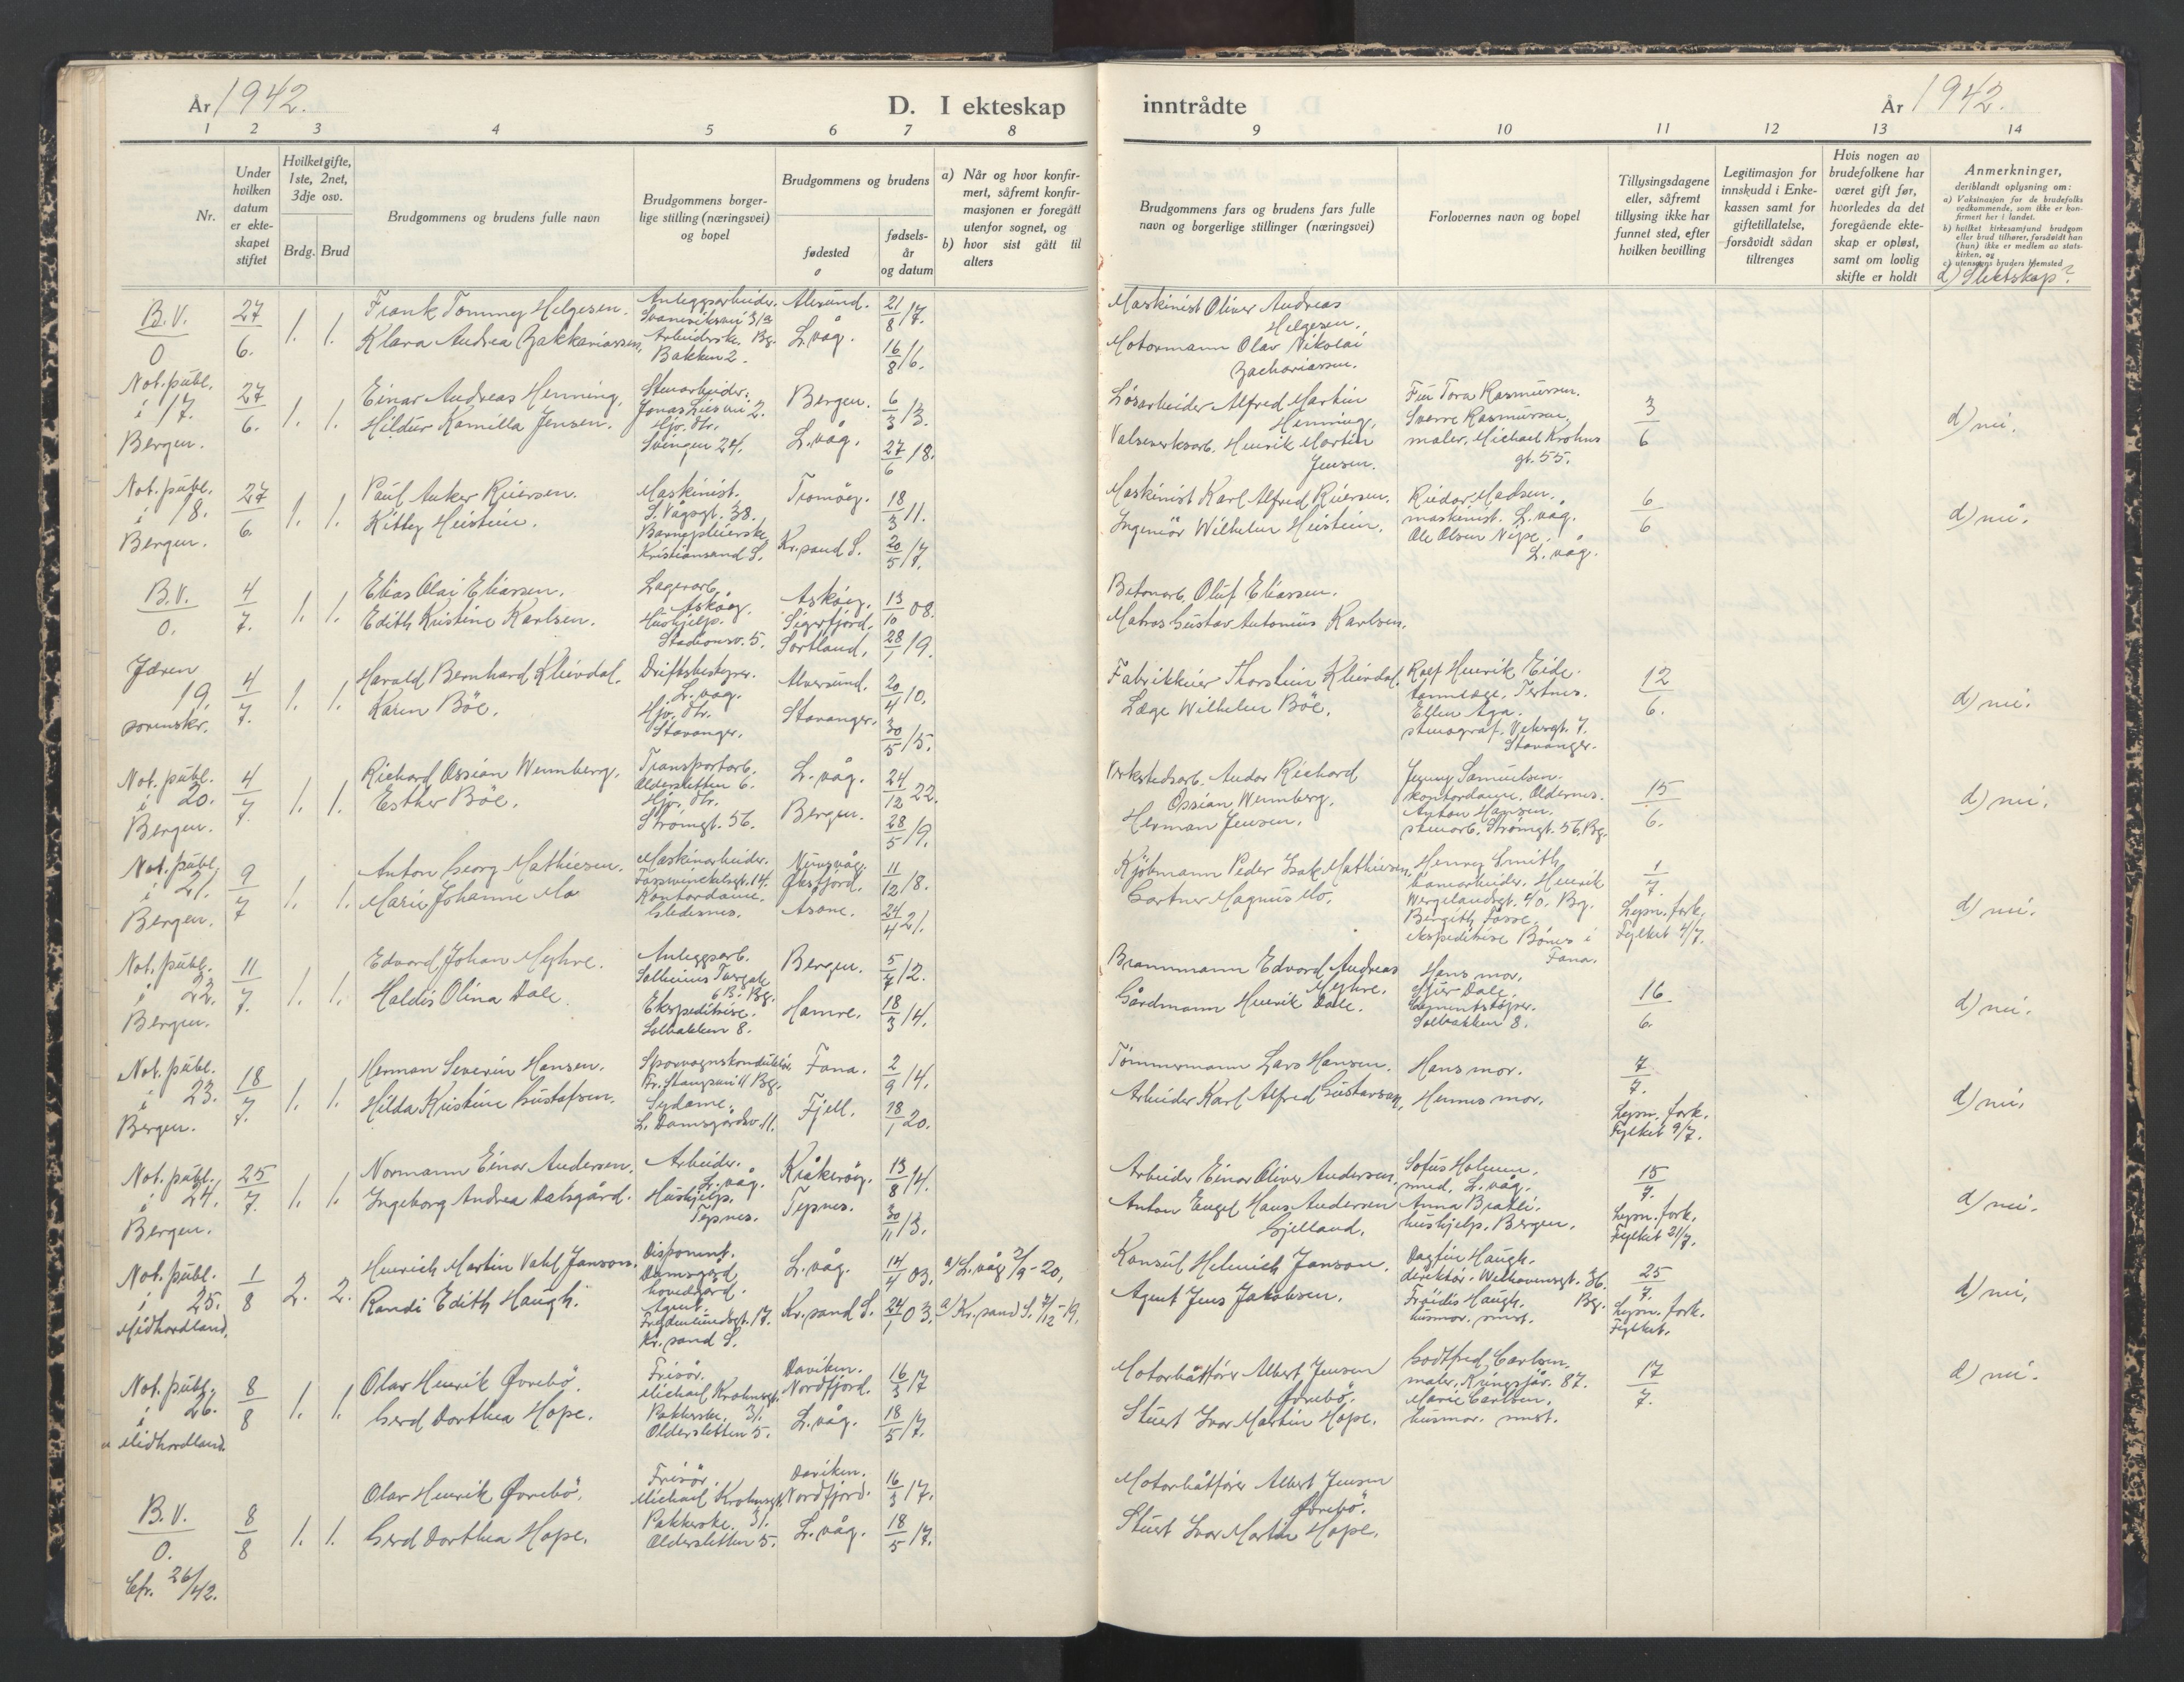 År 1942.
D. I ekteskap
inntrådte
År 1942.
1 2 3 4 5 6 7 8 9 10 11 12 13 14
Nr.
Under hvilken datum er ekteskapet stiftet
Hvilket gifte, 1ste, 2net, 3dje osv.
Brdg. Brud
Brudgommens og brudens fulle navn
Brudgommens borgerlige stilling (næringsvei) og bopel
Brudgommens og brudens
fødested
fødselsår og datum
a) Når og hvor konfirmert, såfremt konfirmasjonen er foregått utenfor sognet, og
b) hvor sist gått til alters
Brudgommens fars og brudens fars fulle navn og borgerlige stillinger (næringsvei)
Forlovernes navn og bopel
Tillysingsdagene eller, såfremt tillysing ikke har funnet sted, efter hvilken bevilling
Legitimasjon for innskudd i Enkekassen samt for giftetillatelse, forsåvidt sådan tiltrenges
Hvis nogen av brudefolkene har været gift før, hvorledes da det foregående ekteskap er opløst, samt om lovlig skifte er holdt
Anmerkninger,
deriblandt oplysning om:
a) Vaksinasjon for de brudefolks vedkommende, som ikke er konfirmert her i landet.
b) hvilket kirkesamfund brudgom eller brud tilhører, forsåvidt han (hun) ikke er medlem av statskirken, og
c) utensogns bruders hjemsted
d) Slektskap?
B.V. 0
27/6.
1. 1.
Frank Tommy Helgesen.
Klara Andrea Zakkariassen,
Anleggsarbeider.
Svaneviksvei 31a
Arbeiderske. Bg.
Bakken 2.
Alesund.
L.våg.
21/8 17.
16/8 16.
Maskinist Oliver Andreas
Helgesen.
Motormann Olav Nikolai
Zachariassen.
Not. publ.
i 17.
Bergen.
27/6.
1. 1.
Einar Andreas Henning.
Hildur Kamilla Jensen.
Stuearbeider.
Jonas Liesvei 2.
Hjv. dtr.
Svingen 24.
Bergen.
L.våg.
6/3 13.
27/6 18.
Løsarbeider Alfred Martin
Henning.
Valseverksarb. Henrik Martin
Jensen.
Fru Tora Rasmussen.
Sverre Rasmussen,
maler, Michael Krohns
gt. 55.
3/6
d) nei.
Not. publ.
i 18.
Bergen.
27/6.
1. 1.
Paul Anker Riiersen.
Kitty Heistein.
Maskinist.
L. Vågsgt. 38.
Barnepleierske
Kristiansand S.
Tromöy.
Kr.sand S.
18/3 11.
20/5 17.
Maskinist Karl Alfred Riiersen.
Ingeniör Wilhelm Heistein.
Reidar Madsen.
maskinist. L.våg.
Ole Olsen Nipe.
L.våg.
6/6
d) nei.
B.V. 0.
4/7.
1. 1.
Elias Olai Eliassen.
Edith Kristine Karlsen.
Lagerarb.
Asköy.
Hushjelp.
Stadionsv. 5.
Asköy.
Sigerfjord.
Sortland.
13/10 08.
28/1 19.
Betonarb. Oluf Eliassen.
Matros Gustav Antonius Karlsen.
Jæren
19.
sorenskr.
4/7.
1. 1.
Harald Bernhard Kleivdal.
Karen Böe.
Driftsbestyrer.
L.våg.
Hjv. dtr.
Stavanger.
Alversund.
Stavanger.
20/4 10.
30/5 15.
Fabrikkeier Thorstein Kleivdal.
Læge Wilhelm Böe.
Rolf Henrik Eide.
tannlæge. Tertnes.
Ellen Aga.
stenograf,
Stavanger.
12/6.
d) nei.
Not. publ.
i 20.
Bergen.
4/7.
1. 1.
Richard Ossian Wennberg.
Esther Böe.
Transportarb.
Oldersletten 6.
Hjv. dtr.
Strömgt. 56.
L.våg.
Bergen.
24/12 22.
28/5 19.
Verkstedsarb. Andor Richard
Ossian Wennberg.
Herman Jensen.
Jenny Samuelsen.
kontordame. Oldernes.
Anton Hansen.
stuearb. Strömgt. 56, Bg.
15/6.
d) nei.
Not. publ.
i 21.
Bergen.
9/7
1. 1.
Anton Georg Mathiesen.
Marie Johanne Mo
Maskinarbeider.
Fosswinckelsgt. 14.
Kontordame.
Gledesnes.
Öksfjord.
Åsane.
11/12 18.
24/4 21.
Kjöbmann Peder Isak Mathiesen.
Gartner Magnus Mo.
Henry Smith.
Henrik
Wergelandsgt. 40. Bg.
Bergith Fosse.
ekspeditrise Bönes i
Fana.
1/7.
Lysn. fork.
Fylket 4/7.
d) nei.
Not. publ.
i 22.
Bergen.
11/7
1. 1.
Edvard Johan Myhre.
Haldis Olina Dale.
Anleggsarb.
Solheims Tvergate
6 B. Bg.
Ekspeditrise.
Solbakken 8.
Bergen.
Hamre.
5/7 12.
18/3 14.
Brannmann Edvard Andreas
Myhre.
Gårdmann Henrik Dale.
Hans mor.
Dale.
Solbakken 8.
16/6.
d) nei.
Not. publ.
i 23.
Bergen.
18/7.
1. 1.
Herman Severin Hansen.
Hilda Kristine Gustafsen.
Sporvognskonduktör.
Fr. Stangsvei 11 Bg.
Sydame.
L. Damsgårdsv. 11.
Fana.
Fjell.
2/9 14.
18/1 20.
Tömmermann Lars Hansen.
Arbeider Karl Alfred Gustavsen.
Hans mor.
Hennes mor.
7/7.
Lysn. fork.
Fylket 9/7.
d) nei.
Not. publ.
i 24.
Bergen.
25/7.
1. 1.
Normann Einar Andersen.
Ingeborg Andrea Dalsgård.
Arbeider.
L.våg.
Hushjelp.
Tepnes.
Kråkeröy.
Tepnes.
13/8 14.
30/11 13.
Arbeider Einar Oliver Andersen.
Anton Engel Hans Andersen
Gjelland.
Sofus Holmen.
smed. L.våg.
Anna Bratli.
hushjelp. Bergen.
15/7.
Lysn. fork.
Fylket 21/7.
d) nei.
Not. publ.
i 25.
Midhordland.
1/8
2. 2.
Heinrich Martin Vahl Janson.
Randi Edith Haugh.
Disponent.
Damsgård
hovedgård.
Agent.
Frydenlundsgt. 17.
Kr.sand S.
L.våg.
Kr.sand S.
14/4 03.
24/1 03.
a) L.våg 2/9-20.
a) Kr.sand S. 7/12-19.
Konsul Helmich Janson.
Agent Jens Jakobsen.
Dagfin Haugh.
direktör. Welhavensgt. 36.
Bg.
Fröidis Haugh.
husmor. smst.
25/7.
Lysn. fork.
Fylket.
d) nei.
Not. publ.
i 26.
Midhordland.
8/8
1. 1.
Olav Henrik Övrebö.
Gerd Dorthea Hope.
Frisör.
Michael Krohnsgt.
Pakkerske. 31.
Oldersletten 5.
Daviken.
Nordfjord.
L.våg.
16/3 17
18/5 17.
Motorbåtförer Albert Jensen
Övrebö.
Stuert Ivar Martin Hope.
Godtfred Carlsen.
maler. Kringsjåv. 87.
Marie Carlsen.
husmor. smst.
17/7.
d) nei.
B.V. 0.
Cfr. 26/42.
8/8
1. 1.
Olav Henrik Övrebö.
Gerd Dorthea Hope.
Frisör.
Michael Krohnsgt.
Pakkerske. 31.
Oldersletten 5.
Daviken.
Nordfjord.
L.våg.
16/3 17.
18/5 17.
Motorbåtförer Albert Jensen
Övrebö.
Stuert Ivar Martin Hope.